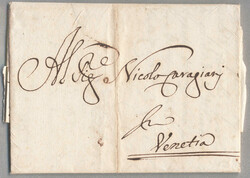 Al Sig.e Nicolo Caragiani
in
Venetia